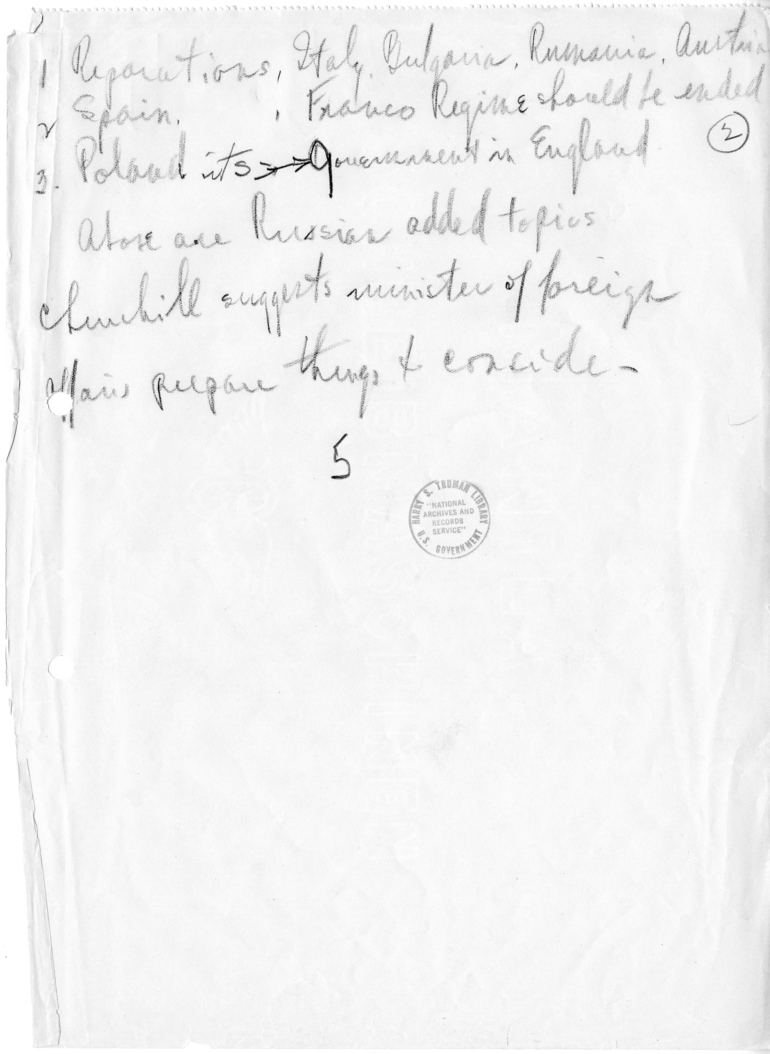 1 Reparations, Italy, Bulgaria, Rumania, Austria
2 Spain. , Franco Regime should be ended
②
3. Poland its → Government in England
Above are Russian added topics
Churchill suggests minister of foreign
affairs prepare things & conside-
5
HARRY S. TRUMAN LIBRARY
"NATIONAL
ARCHIVES AND
RECORDS
SERVICE"
U.S. GOVERNMENT